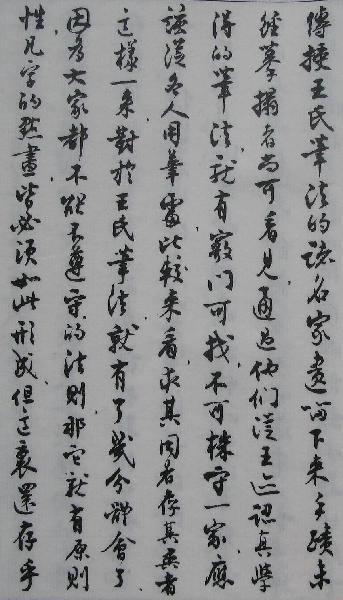 傳授王氏筆法的诸名家遺留下来手蹟未
經摹搨者尚可看見通过他们從王迹認真學
得的筆法就有竅门可找不可株守一家應
該從各人用筆處比較来看求其同者存其異者
这樣一来對於王氏筆法就有了幾分體會了
因为大家都不能不遵守的法則那它就有原則
性凡字的點畫皆必须如此形成但这裏還存乎